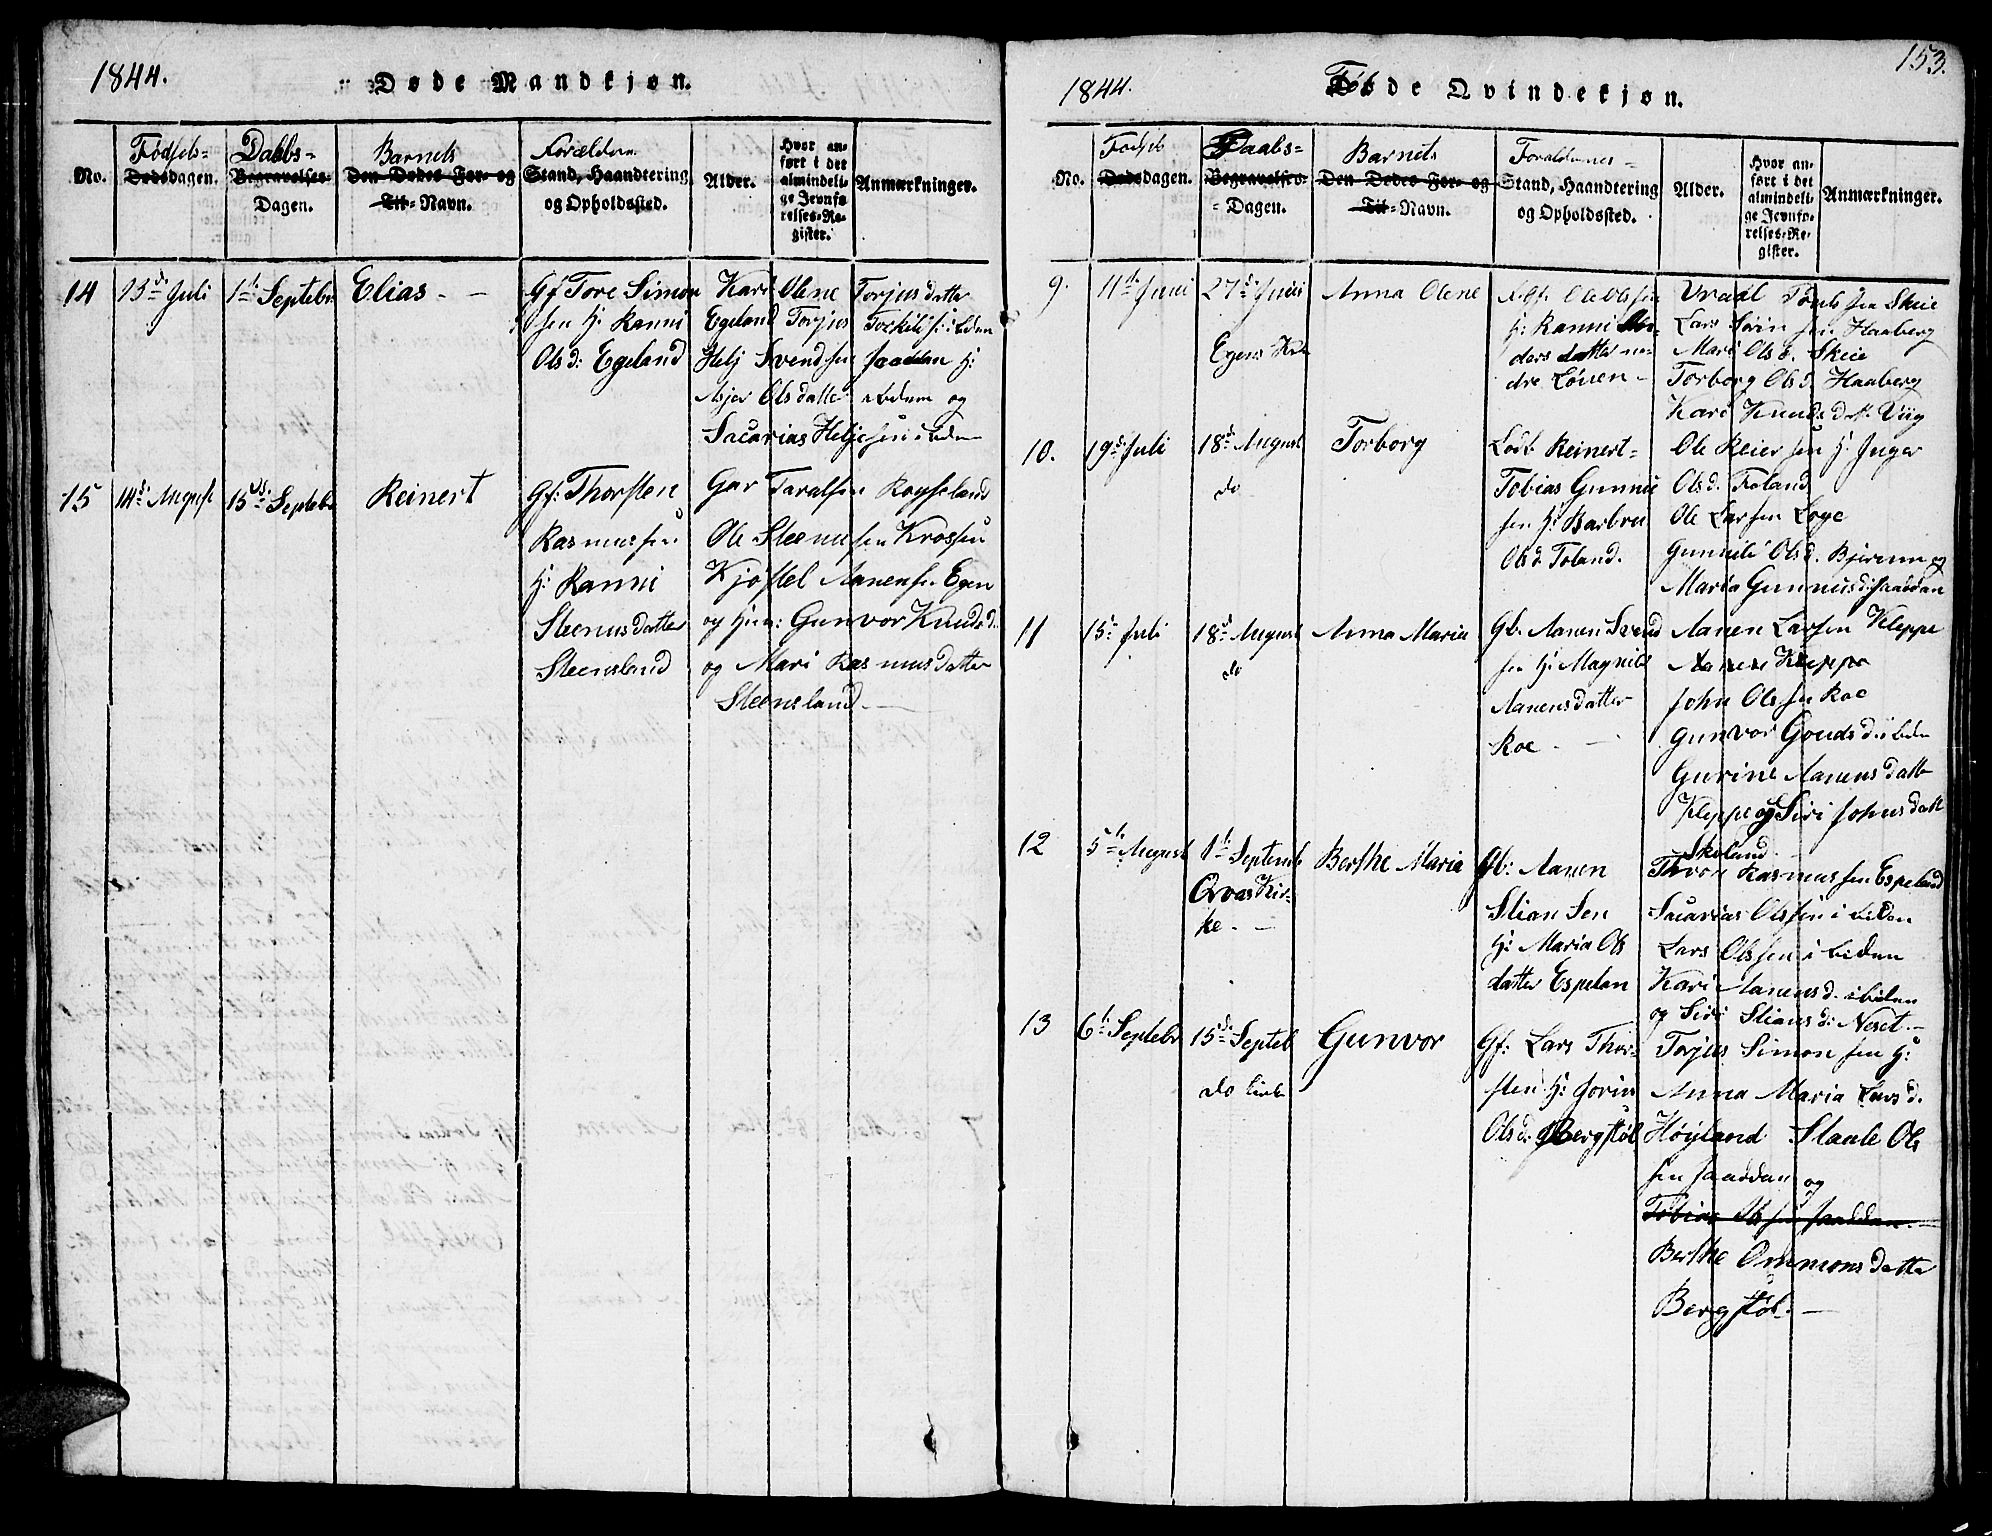 1844.
Døde Mandkjøn.
No.
Fødsels-
Dødsdagen.
Daabs-
Begravelses-
Dagen.
Barnets
Den Dødes For- og
Til-Navn.
Forældern
Stand, Haandtering
og Opholdssted.
Alder.
Hvor an-
ført i det
almindeli-
ge Jevnfø-
relses-Re-
gister.
Anmærkninger.
14
13de Juli
1te Septebr
Elias
Gf Tore Simon
sen H: Ranni
Olsd: Egeland
Kari Olene Torjusdatter
Egeland Torjus
Helj Svendsen Jaaddan H:
Asjer Olsdatter ibdem og
Sacarias Heljesen ibdem
15
14de August
15de Septebr
Reinert
Gf: Thorsten
Rasmussen
H: Ranni
Steenusdatter
Steensland
Gar Taralsen Royseland
Ole Steenusen Krossen
Kjøstel Aanensen Egen
og hun: Gunvor Knudsd.
og Mari Rasmusdatter
Steensland
153.
1844.
Føde Qvindekjøn.
No.
Fødsels
Dødsdagen.
Daabs-
Begravelses-
Dagen.
Barnets
Den Dødes For- og
Til-Navn.
Forældrenes
Stand, Haandtering
og Opholdssted.
Alder.
Hvor an-
ført i det
almindeli-
ge Jevnfø-
relses-Re-
gister.
Anmærkninger.
9.
11te Juni
27de Juni
Egens Kir
Anna Olene
Ole Olssen
H: Ranni An-
ders datter ne-
dre Lönen
Vraal Skeie
Lars Haaberg
Mari Olsd. Skeie
Torborg Olsd. Haaberg
Kari Knudsdtt. Viig
10.
19de Juli
18de August
do
Torborg
Lodt Reinert-
Tobias Gunnu
sen H: Barbru
Olsd. Foland.
Ole Reiersen H: Inger
Olsd. Foland
Ole Larsen Loge
Gunnild Olsd. Bjerum og
Maria Gunnusd: Jaaddan
11
15de Juli
18de August
do
Anna Maria
Gb. Aanen Svend
sen H: Magnild
Aanensdatter
Roe
Aanen Larsen Kleppe
Aanen Kleppe
John Olssen Roe
Gunvor Goudsd: ibdm
Gurine Aanensdatt
Kleppe og Siri Johnsdatt
Skoland
12
5te August
1te Septemb
Qvas Kir-
ke.
Berthe Maria
Gb: Aanen
Stian Sen
H: Maria Ols
datter Espelan
Thore Rasmussen Espeland
Sacarias Olssen ibiden
Lars Olssen ibidem
Kari Aanensd. ibiden
og Siri Stiansd: Neset
13
6te Septebr
15de Septeb
do
Gunvor
Gf: Lars Thor-
sten H: Jorin
Olsd: Bergstøl
Torjus Simonsen H:
Anna Maria Larsd.
Høyland Staale Ols
sen Jaaddan og
Tobias Olsen Jaaddan
Berthe Ommonsdatter
Bergstøl